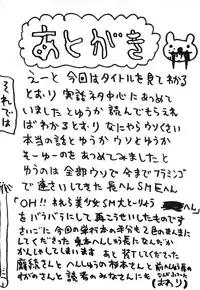 あとがき
えーと 今回はタイトルを見てわかる
とおり 実話ネタ中心にあつめて
いました とゆうか 読んでもらえ
ればわかるとおり なにやらウソくさい
本当の話とゆうか ウソとゆうか
そーゆーのをあつめてみましたと
ゆうのは全部ウソで 今までフラミンゴ
で連さいしてきた長へんSMEへん
「OH!! それる美少女SM大とーりょう
へん」
をバラバラにして再こうせいしたものです
さいごに 今回の単行本の半分も2色のまんまに
してくださった
へんしゅう長になんだか
かんしゃしてしまいます あと 装丁してくださった
さんと へんしゅうの松本さんと
前へんしゅう長の
さんと 読者のみなさんにも
(おわり)
それでは